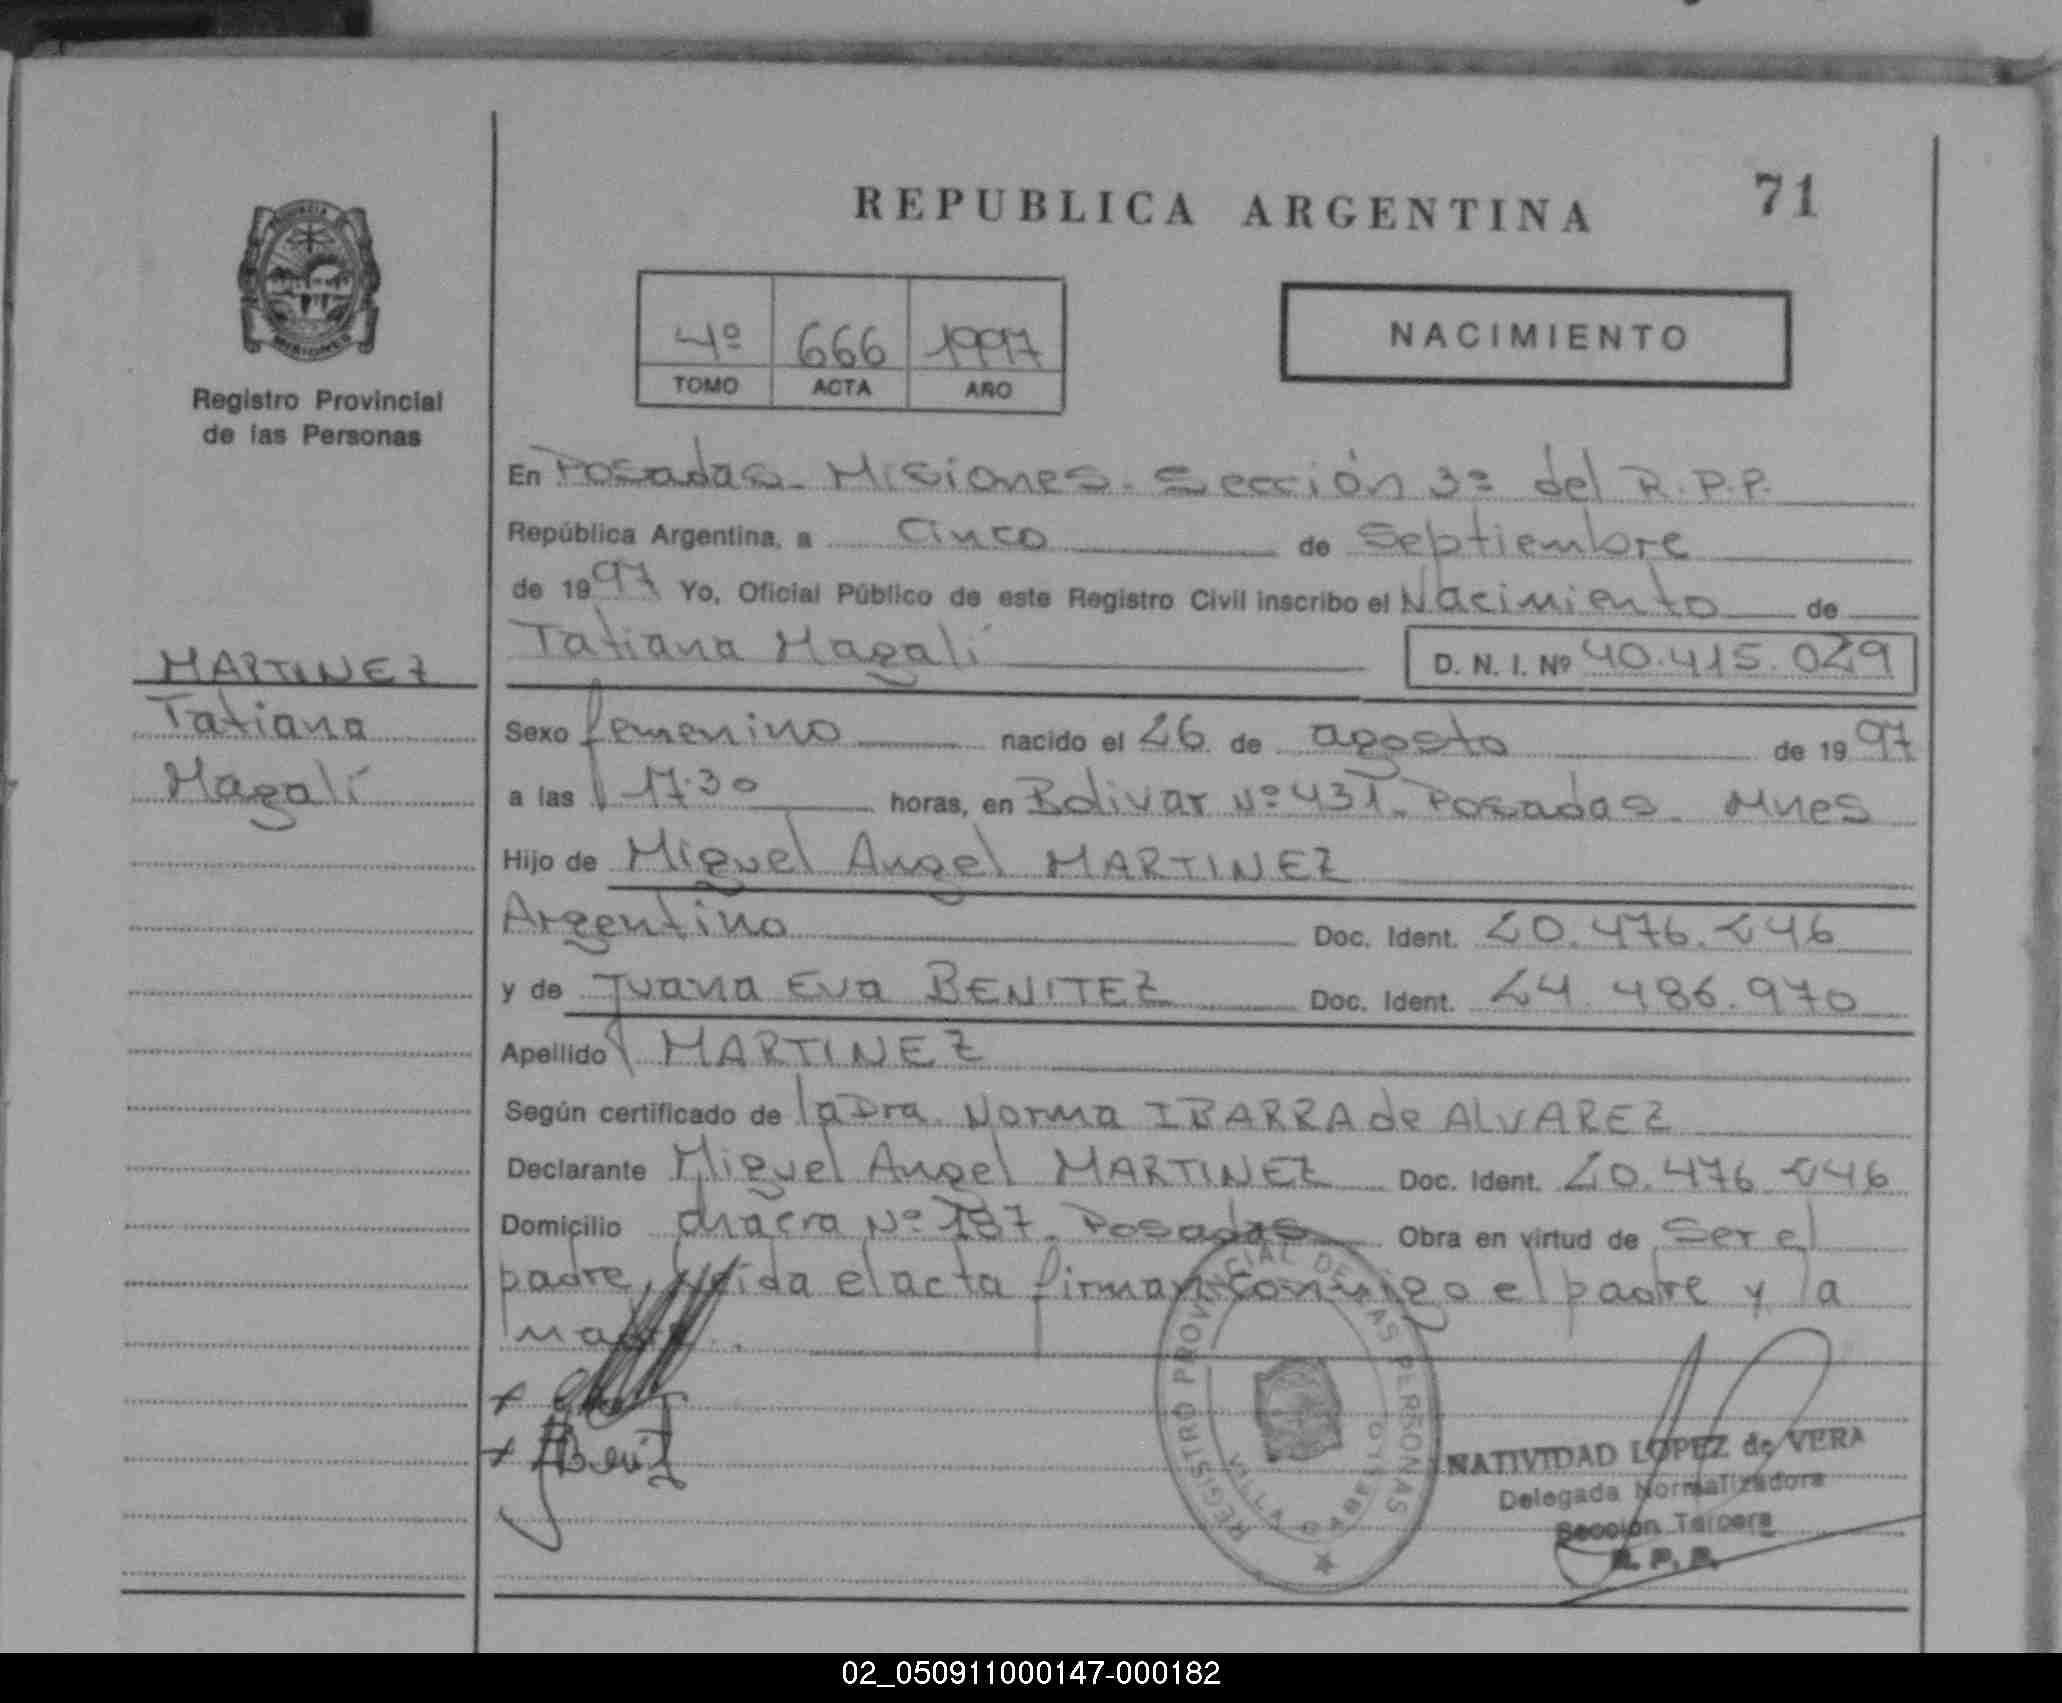 REPUBLICA ARGENTINA
71
4º 666 1997
TOMO ACTA AÑO
NACIMIENTO
MISIONES
Registro Provincial
de las Personas
En Posadas - Misiones - Sección 3ª del R.P.P.
República Argentina, a cinco de Septiembre
de 1997 Yo, Oficial Público de este Registro Civil inscribo el Nacimiento de
Tatiana Magalí D. N. I. Nº 40.415.029
MARTINEZ
Tatiana
Magalí
Sexo femenino nacido el 26 de agosto de 1997
a las 17:30 horas, en Bolivar Nº 431. Posadas - Mnes
Hijo de Miguel Angel MARTINEZ
Argentino Doc. Ident. 20.476.246
y de Juana Eva BENITEZ Doc. Ident. 24.486.970
Apellido MARTINEZ
Según certificado de la Dra. Norma IBARRA de ALVAREZ
Declarante Miguel Angel MARTINEZ Doc. Ident. 20.476.246
Domicilio chacra Nº 187. Posadas Obra en virtud de ser el
padre, leída el acta firman conmigo el padre y la
madre.
REGISTRO PROVINCIAL DE LAS PERSONAS
VILLA CABELLO
NATIVIDAD LOPEZ de VERA
Delegada Normalizadora
Sección Tercera
R. P. P.
02_050911000147-000182